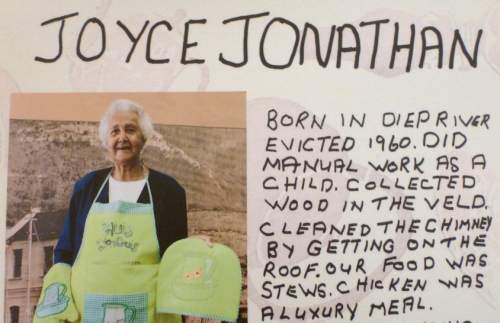 JOYCE JONATHAN
BORN IN DIEP RIVER
EVICTED 1960. DID
MANUAL WORK AS A
CHILD. COLLECTED
WOOD IN THE VELD.
CLEANED THE CHIMNEY
BY GETTING ON THE
ROOF. OUR FOOD WAS
STEWS. CHICKEN WAS
A LUXURY MEAL.